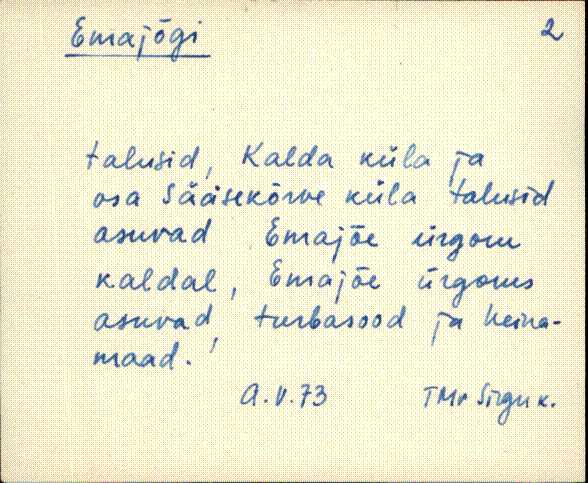 Emajõgi 2
talusid, Kalda küla ja
osa Sääsekõrve küla talusid
asuvad Emajõe ürgoru
kaldal, Emajõe ürgorus
asuvad turbasood ja heina-
maad.
A.V.73 TMr Sirgu k.